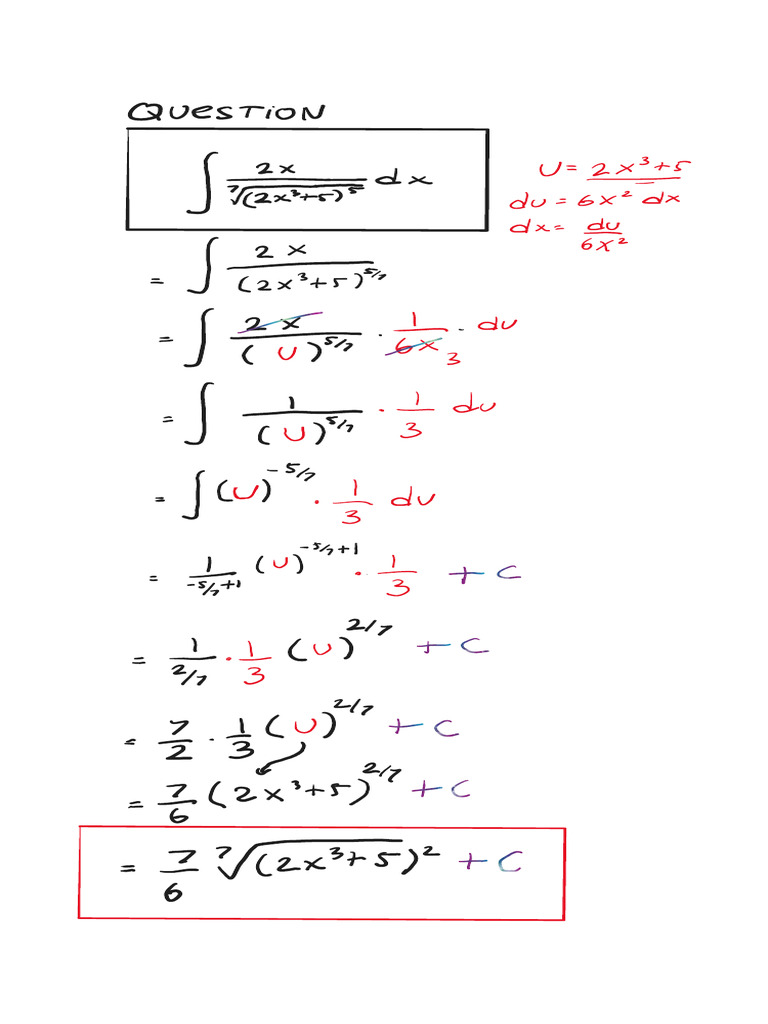 QUESTION
∫ 2x / ⁷√(2x³+5)⁵ dx
U = 2x³+5
du = 6x² dx
dx = du / 6x²
= ∫ 2x / (2x³+5)^5/7
= ∫ 2x / (U)^5/7 · 1 / 6x 3 · du
= ∫ 1 / (U)^5/7 · 1/3 du
= ∫ (U)^-5/7 · 1/3 du
= 1 / -5/7+1 (U)^-5/7+1 · 1/3 + C
= 1 / 2/7 · 1/3 (U)^2/7 + C
= 7/2 · 1/3 (U)^2/7 + C
= 7/6 (2x³+5)^2/7 + C
= 7/6 ⁷√(2x³+5)² + C